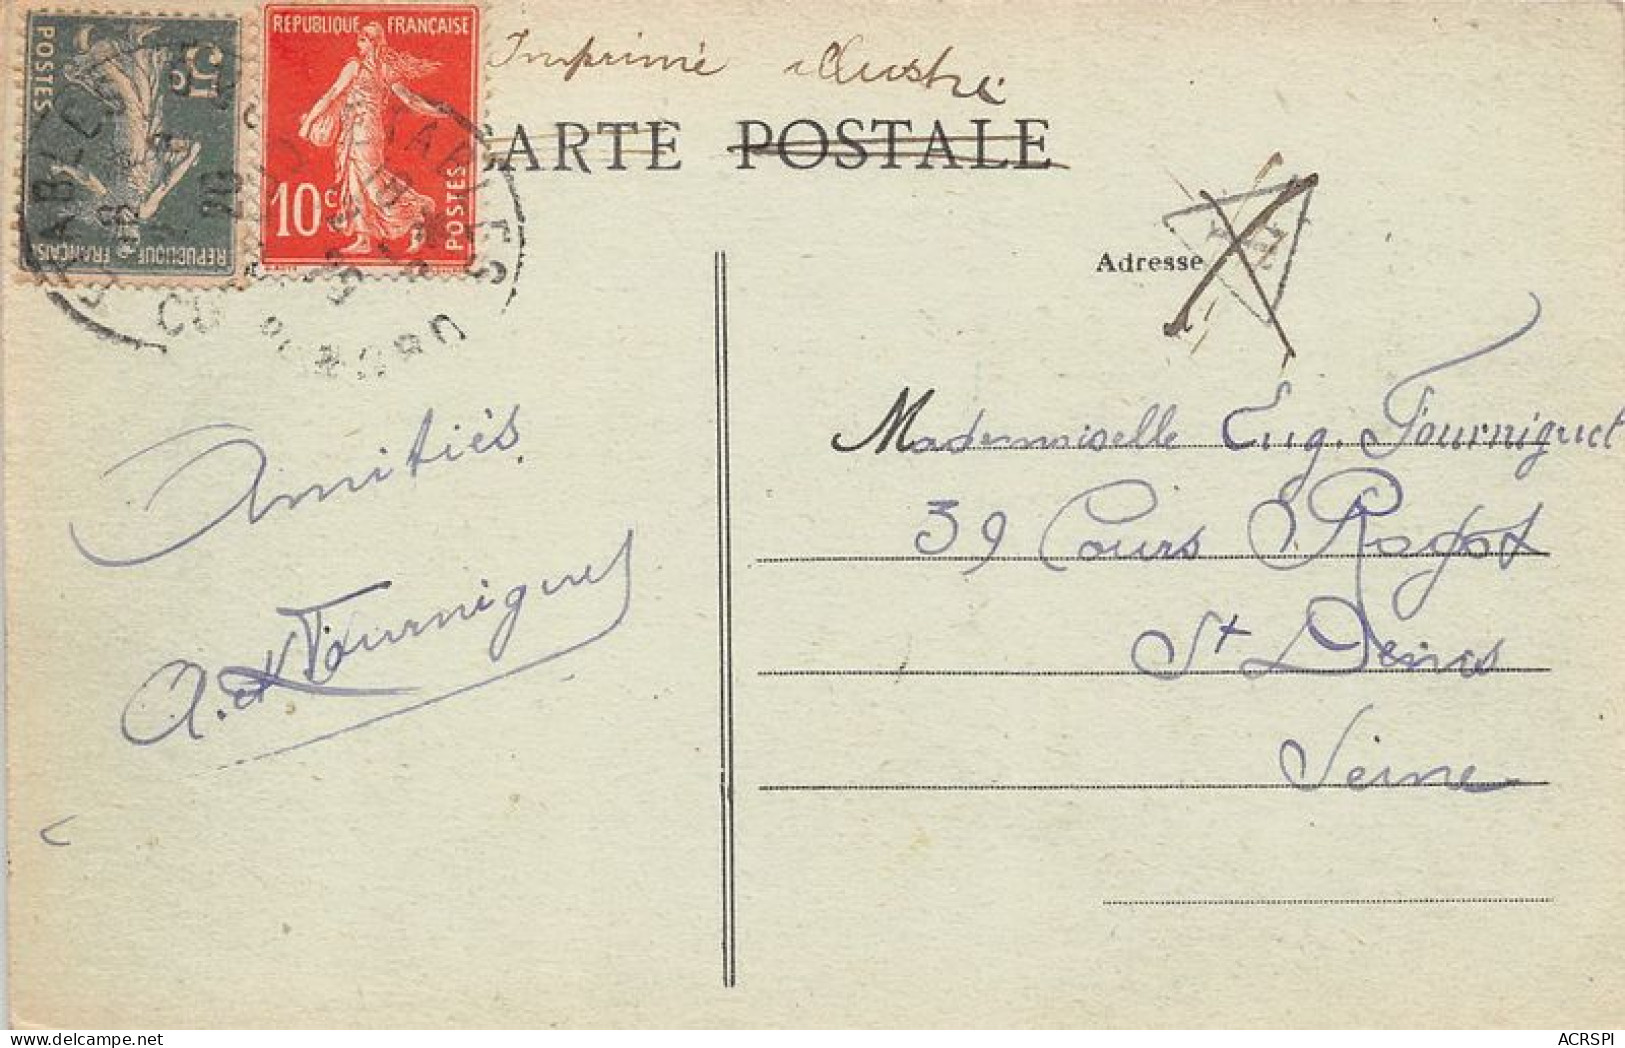 REPUBLIQUE FRANÇAISE
5c
POSTES
REPUBLIQUE FRANÇAISE
10c
POSTES
Imprimé illustré
CARTE POSTALE
Adresse
Mademoiselle Eug. Fourniguet
39 Cours Ragot
St Denis
Seine
Amitiés
A. et Fourniguet
ACRSPI